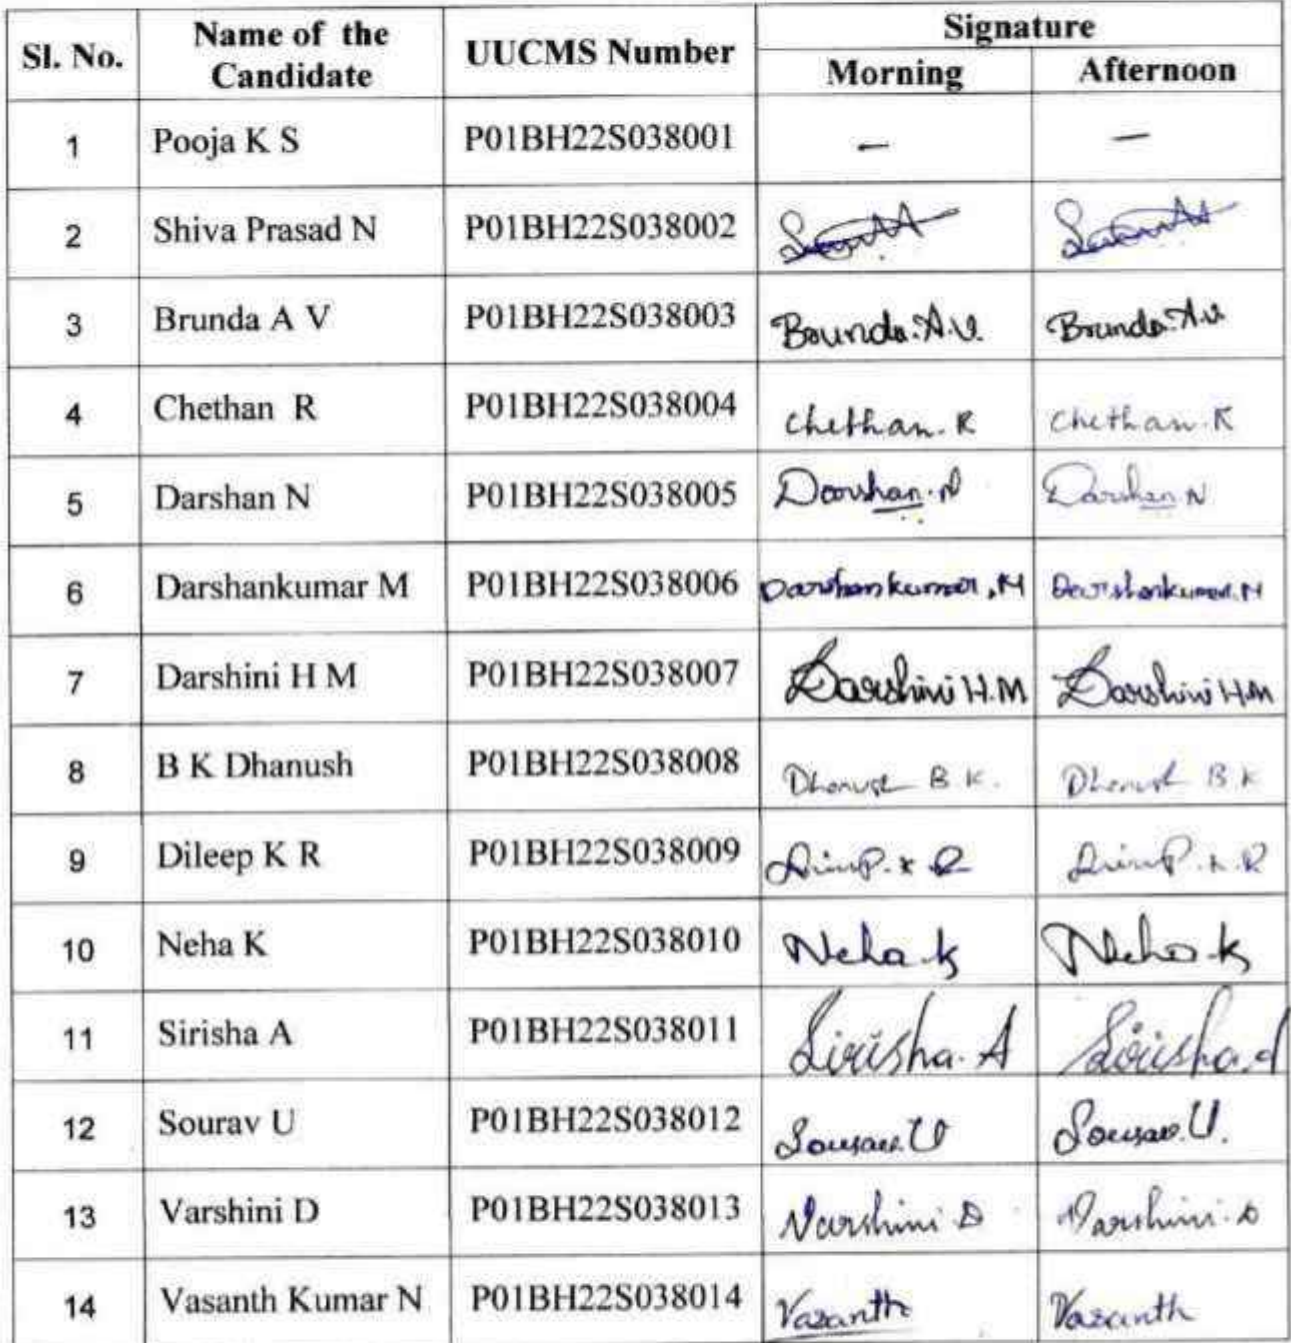 Sl. No. Name of the Candidate UUCMS Number Signature
Morning Afternoon
1 Pooja K S P01BH22S038001 – –
2 Shiva Prasad N P01BH22S038002
3 Brunda A V P01BH22S038003 Brunda.A.V. Brunda.A.V
4 Chethan R P01BH22S038004 Chethan.R Chethan.R
5 Darshan N P01BH22S038005 Darshan.N Darshan N
6 Darshankumar M P01BH22S038006 Darshankumar.M Darshankumar.M
7 Darshini H M P01BH22S038007 Darshini H.M Darshini H.M
8 B K Dhanush P01BH22S038008 Dhanush B K. Dhanush B K
9 Dileep K R P01BH22S038009
10 Neha K P01BH22S038010 Neha.k Neha.k
11 Sirisha A P01BH22S038011 Sirisha.A Sirisha.A
12 Sourav U P01BH22S038012 Sourav.U Sourav.U.
13 Varshini D P01BH22S038013 Varshini D Varshini.D
14 Vasanth Kumar N P01BH22S038014 Vasanth Vasanth